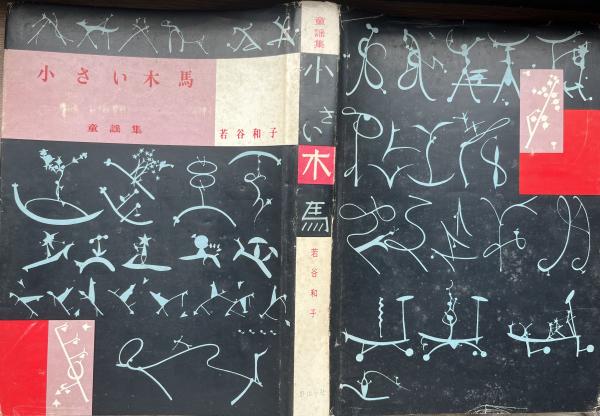 小さい木馬
童謡集
若谷和子
童謡集
小さい
木
馬
若谷和子